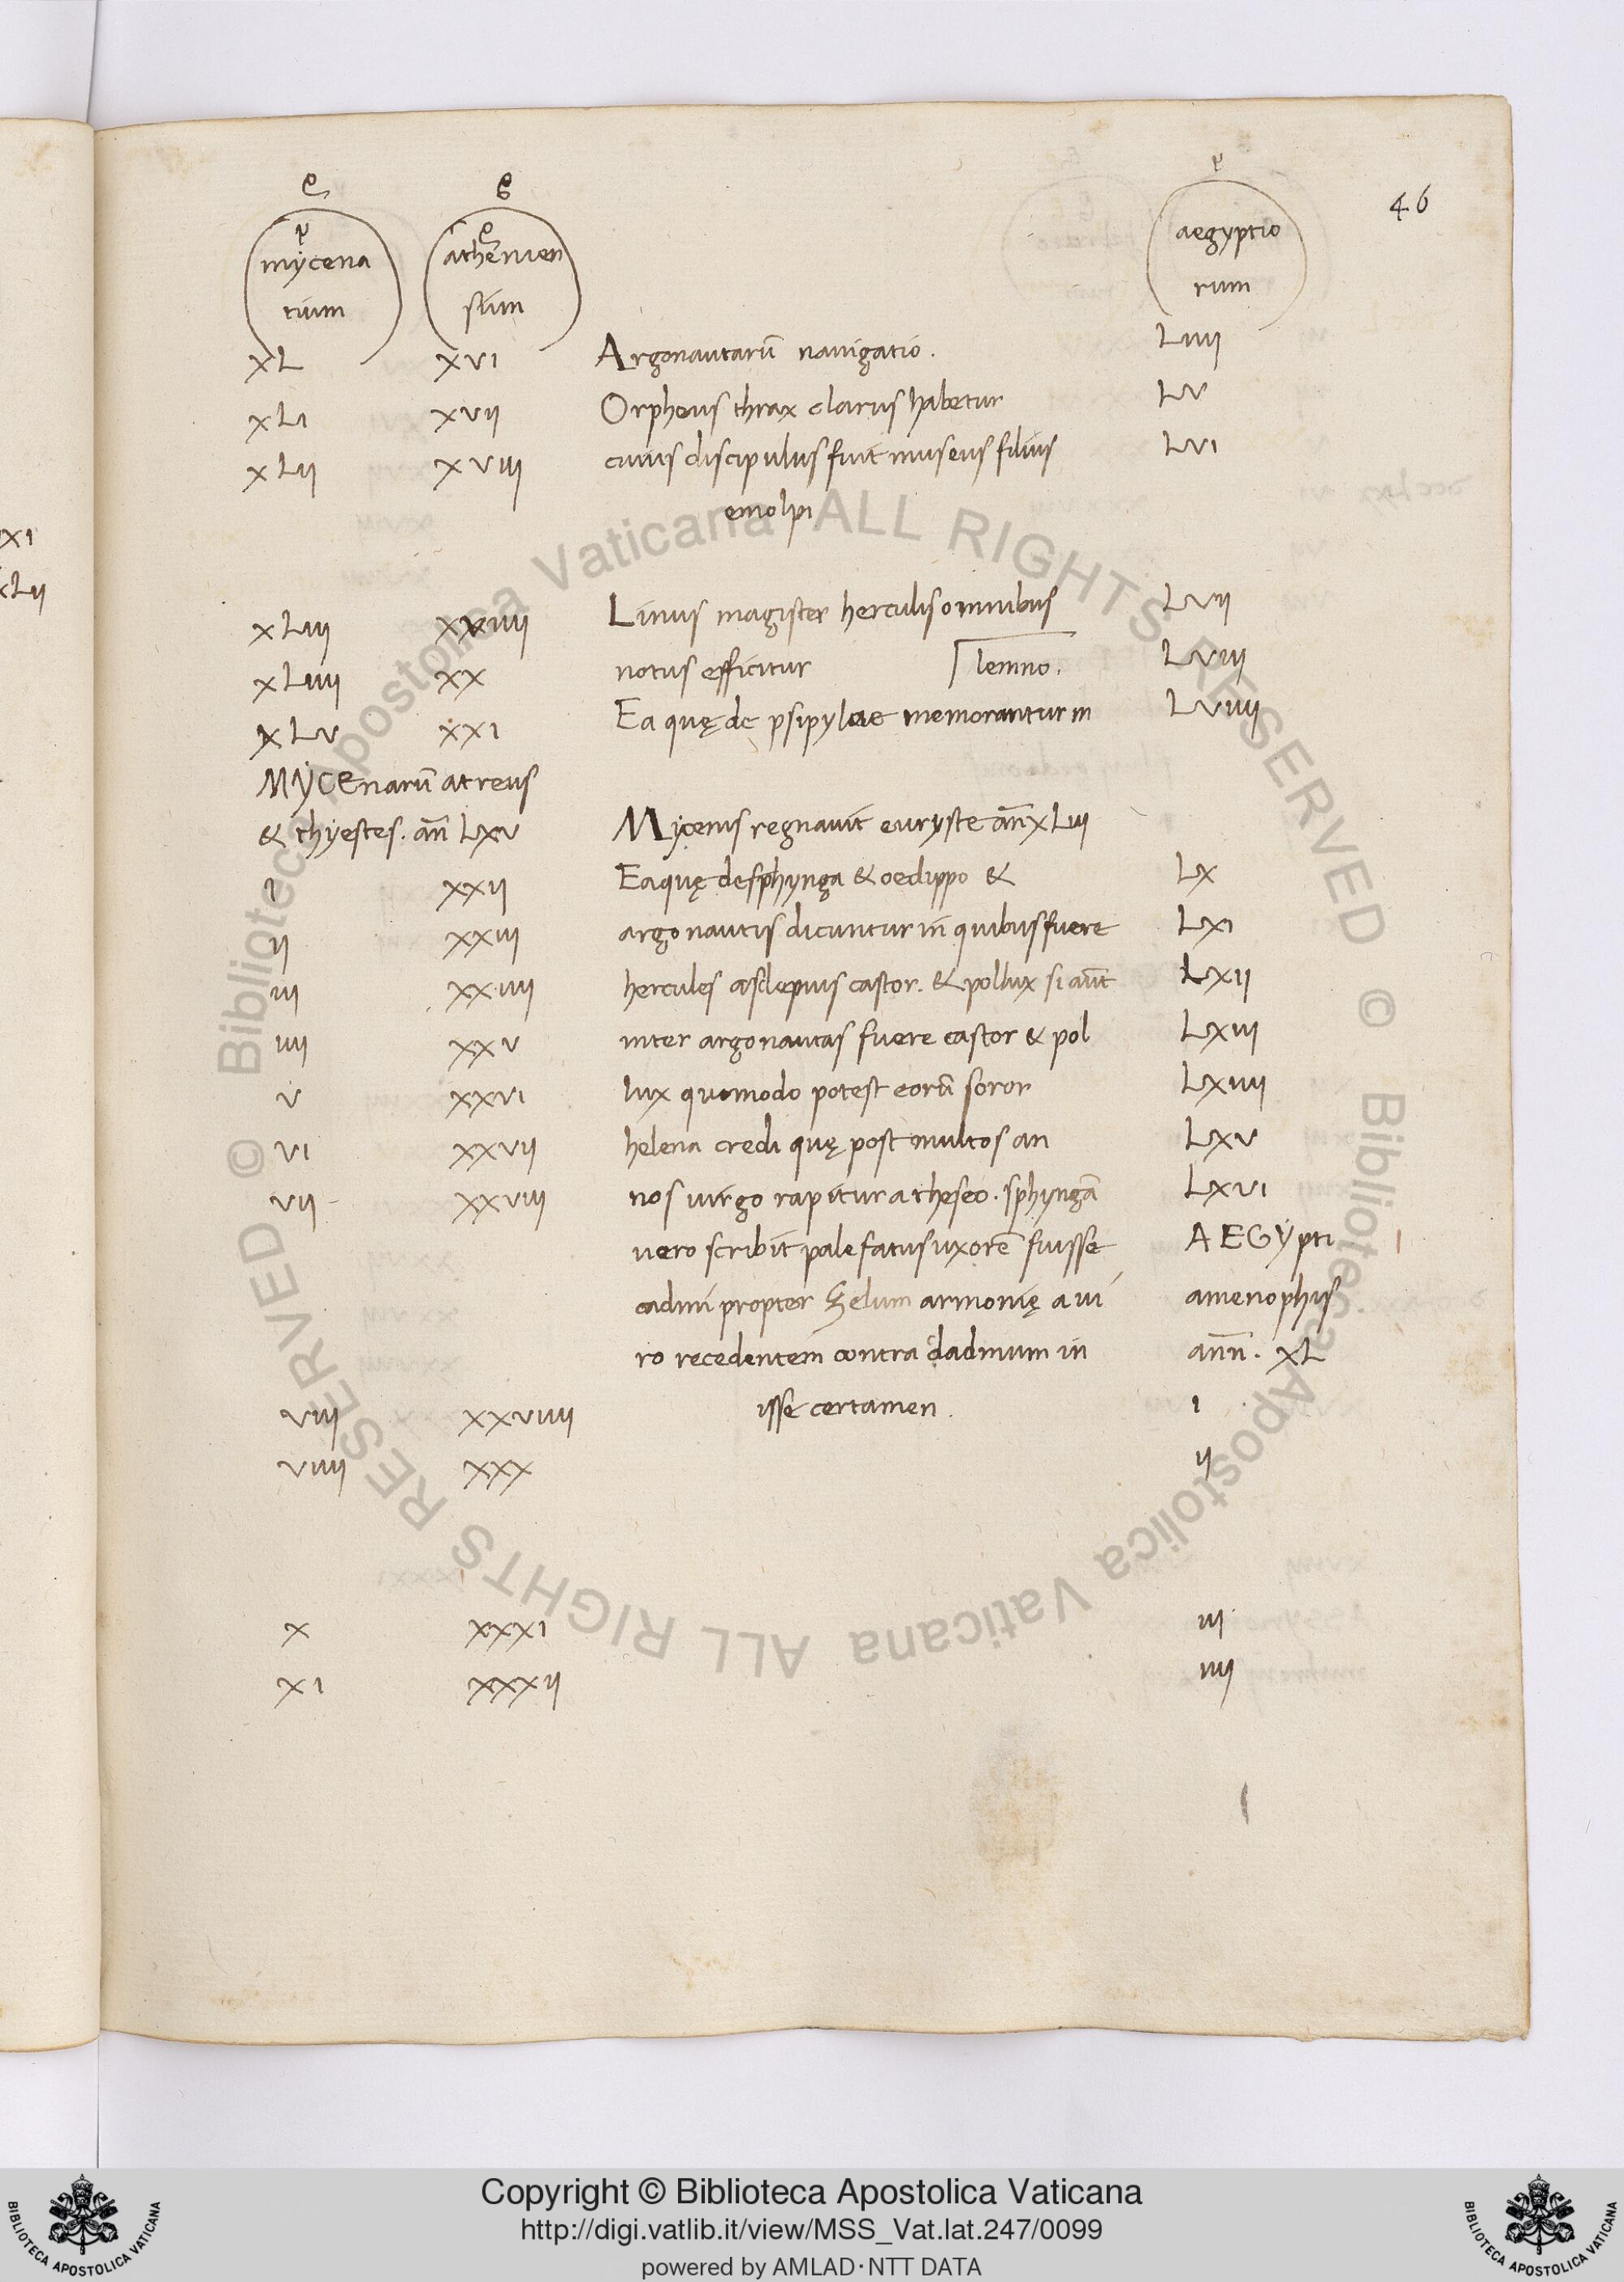 46
mẏcena
rium
atheniẽen
sium
aegyptio
rum
xL xvi Argonautarũ nauigatio. Liiij
xLi xvii Orpheus thrax clarus habetur Lv
xLii xviii cuius discipulus fuit museus filius Lvi
emolpi
xLiii xviiii Linus magister herculis omnibus Lvii
xLiiii xx notus efficitur lemno. Lviii
xLv xxi Ea quę de psipylae memorantur in Lviiii
MẏCEnarũ atreus
& thẏestes. añ Lxv Mẏcenis regnauit euryste añ xLiii
i xxii Ea quę de sphynga & oedippo & Lx
ii xxiii argonautis dicuntur in quibus fuere Lxi
iii xxiiii hercules asclepius castor. & pollux si aũt Lxii
iiii xxv inter argonautas fuere castor & pol Lxiii
v xxvi lux quomodo potest eorũ soror Lxiiii
vi xxvii helena credi quę post multos an Lxv
vii xxviii nos uirgo rapitur a theseo. sphyngã Lxvi
uero scribit palefatus uxorẽ fuisse AEGẏpti
cadmi propter zelum armonię a ui amenophis
ro recedentem contra dadmum in anñ. xL
viii xxviiii isse certamen. i
viiii xxx ii
x xxxi iii
xi xxxii iiii
xi
xLii
© Biblioteca Apostolica Vaticana ALL RIGHTS RESERVED © Biblioteca Apostolica Vaticana ALL RIGHTS RESERVED
Copyright © Biblioteca Apostolica Vaticana
http://digi.vatlib.it/view/MSS_Vat.lat.247/0099
powered by AMLAD·NTT DATA
BIBLIOTECA APOSTOLICA VATICANA
BIBLIOTECA APOSTOLICA VATICANA